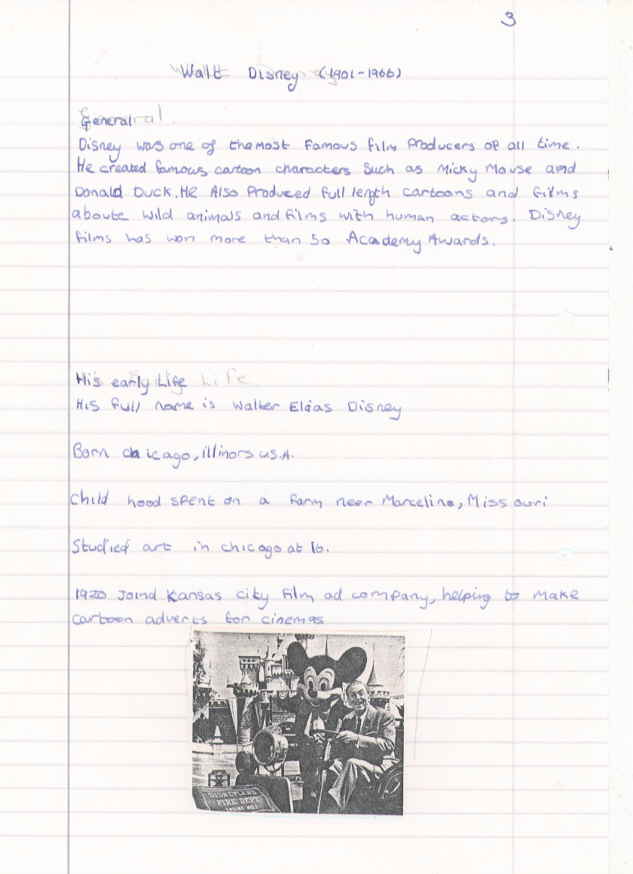 3
Walt Disney (1901-1966)
General
Disney was one of the most famous film producers of all time.
He created famous cartoon characters such as Micky Mouse and
Donald Duck. He Also Produced full length cartoons and films
aboute wild animals and films with human actors. Disney
films has won more than 50 Academy Awards.
His early Life Life
His full name is Walter Elias Disney
Born chicago, illinors U.S.A.
Child hood spent on a farm neer Marceline, Missouri
Studied art in chicago at 16.
1920 Joind Kansas city Film ad company, helping to make
cartoon adverts for cinemas
DISNEYLAND
FIRE DEPT.